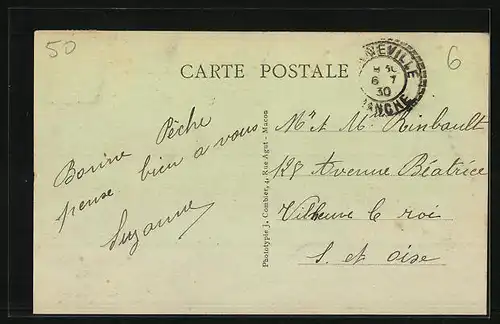 50
6
CARTE POSTALE
NNEVILLE
6 7
30
MANCHE
Bonne Pêche
pense bien a vous
Suzanne
Phototypie J. Combier, 4, Rue Agut - Macon
Mr et Me Rinbault
125 Avenue Béatrice
Villeneuve le roi
S. et oise